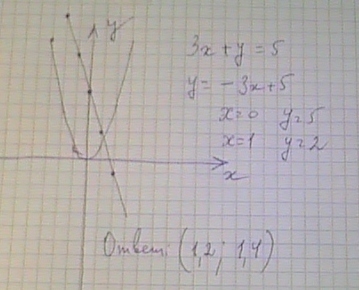 y
3x + y = 5
y = -3x + 5
x = 0 y = 5
x = 1 y = 2
x
Ответ: (1,2; 1,4)